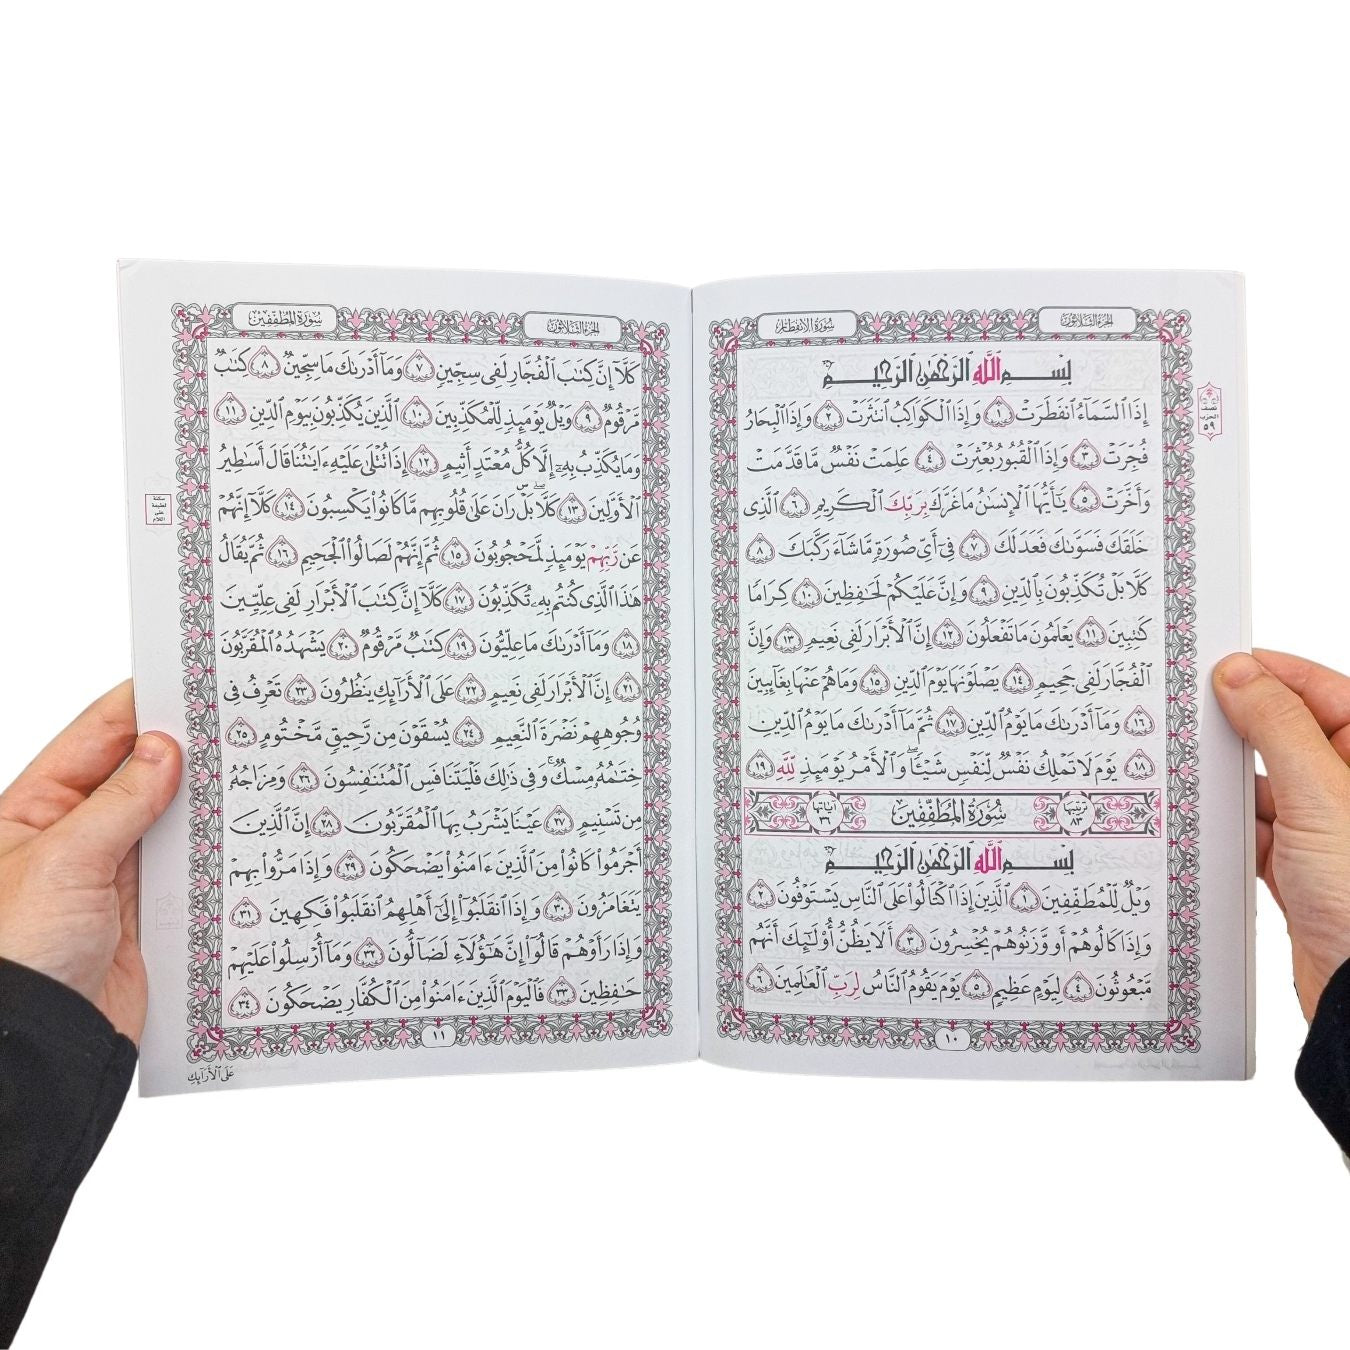 الجزء الثلاثون
سورة الانفطار
بِسْمِ ٱللَّهِ ٱلرَّحْمَٰنِ ٱلرَّحِيمِ
إِذَا ٱلسَّمَآءُ ٱنفَطَرَتْ ١ وَإِذَا ٱلْكَوَاكِبُ ٱنتَثَرَتْ ٢ وَإِذَا ٱلْبِحَارُ
فُجِّرَتْ ٣ وَإِذَا ٱلْقُبُورُ بُعْثِرَتْ ٤ عَلِمَتْ نَفْسٌ مَّا قَدَّمَتْ
وَأَخَّرَتْ ٥ يَٰٓأَيُّهَا ٱلْإِنسَٰنُ مَا غَرَّكَ بِرَبِّكَ ٱلْكَرِيمِ ٦ ٱلَّذِى
خَلَقَكَ فَسَوَّىٰكَ فَعَدَلَكَ ٧ فِىٓ أَىِّ صُورَةٍ مَّا شَآءَ رَكَّبَكَ ٨
كَلَّا بَلْ تُكَذِّبُونَ بِٱلدِّينِ ٩ وَإِنَّ عَلَيْكُمْ لَحَٰفِظِينَ ١٠ كِرَامًا
كَٰتِبِينَ ١١ يَعْلَمُونَ مَا تَفْعَلُونَ ١٢ إِنَّ ٱلْأَبْرَارَ لَفِى نَعِيمٍ ١٣ وَإِنَّ
ٱلْفُجَّارَ لَفِى جَحِيمٍ ١٤ يَصْلَوْنَهَا يَوْمَ ٱلدِّينِ ١٥ وَمَا هُمْ عَنْهَا بِغَآئِبِينَ
١٦ وَمَآ أَدْرَىٰكَ مَا يَوْمُ ٱلدِّينِ ١٧ ثُمَّ مَآ أَدْرَىٰكَ مَا يَوْمُ ٱلدِّينِ
١٨ يَوْمَ لَا تَمْلِكُ نَفْسٌ لِّنَفْسٍ شَيْـًٔا ۖ وَٱلْأَمْرُ يَوْمَئِذٍ لِّلَّهِ ١٩
ترتيبها ٨٣ سُورَةُ المُطَفِّفِينَ آياتها ٣٦
بِسْمِ ٱللَّهِ ٱلرَّحْمَٰنِ ٱلرَّحِيمِ
وَيْلٌ لِّلْمُطَفِّفِينَ ١ ٱلَّذِينَ إِذَا ٱكْتَالُوا۟ عَلَى ٱلنَّاسِ يَسْتَوْفُونَ ٢
وَإِذَا كَالُوهُمْ أَو وَّزَنُوهُمْ يُخْسِرُونَ ٣ أَلَا يَظُنُّ أُو۟لَٰٓئِكَ أَنَّهُم
مَّبْعُوثُونَ ٤ لِيَوْمٍ عَظِيمٍ ٥ يَوْمَ يَقُومُ ٱلنَّاسُ لِرَبِّ ٱلْعَٰلَمِينَ ٦
١٠
نصف
الحزب
٥٩
الجزء الثلاثون
سورة المطففين
كَلَّآ إِنَّ كِتَٰبَ ٱلْفُجَّارِ لَفِى سِجِّينٍ ٧ وَمَآ أَدْرَىٰكَ مَا سِجِّينٌ ٨ كِتَٰبٌ
مَّرْقُومٌ ٩ وَيْلٌ يَوْمَئِذٍ لِّلْمُكَذِّبِينَ ١٠ ٱلَّذِينَ يُكَذِّبُونَ بِيَوْمِ ٱلدِّينِ ١١
وَمَا يُكَذِّبُ بِهِۦٓ إِلَّا كُلُّ مُعْتَدٍ أَثِيمٍ ١٢ إِذَا تُتْلَىٰ عَلَيْهِ ءَايَٰتُنَا قَالَ أَسَٰطِيرُ
ٱلْأَوَّلِينَ ١٣ كَلَّا ۖ بَلْ ۜ رَانَ عَلَىٰ قُلُوبِهِم مَّا كَانُوا۟ يَكْسِبُونَ ١٤ كَلَّآ إِنَّهُمْ
عَن رَّبِّهِمْ يَوْمَئِذٍ لَّمَحْجُوبُونَ ١٥ ثُمَّ إِنَّهُمْ لَصَالُوا۟ ٱلْجَحِيمِ ١٦ ثُمَّ يُقَالُ
هَٰذَا ٱلَّذِى كُنتُم بِهِۦ تُكَذِّبُونَ ١٧ كَلَّآ إِنَّ كِتَٰبَ ٱلْأَبْرَارِ لَفِى عِلِّيِّينَ
١٨ وَمَآ أَدْرَىٰكَ مَا عِلِّيُّونَ ١٩ كِتَٰبٌ مَّرْقُومٌ ٢٠ يَشْهَدُهُ ٱلْمُقَرَّبُونَ
٢١ إِنَّ ٱلْأَبْرَارَ لَفِى نَعِيمٍ ٢٢ عَلَى ٱلْأَرَآئِكِ يَنظُرُونَ ٢٣ تَعْرِفُ فِى
وُجُوهِهِمْ نَضْرَةَ ٱلنَّعِيمِ ٢٤ يُسْقَوْنَ مِن رَّحِيقٍ مَّخْتُومٍ ٢٥
خِتَٰمُهُۥ مِسْكٌ ۚ وَفِى ذَٰلِكَ فَلْيَتَنَافَسِ ٱلْمُتَنَٰفِسُونَ ٢٦ وَمِزَاجُهُۥ
مِن تَسْنِيمٍ ٢٧ عَيْنًا يَشْرَبُ بِهَا ٱلْمُقَرَّبُونَ ٢٨ إِنَّ ٱلَّذِينَ
أَجْرَمُوا۟ كَانُوا۟ مِنَ ٱلَّذِينَ ءَامَنُوا۟ يَضْحَكُونَ ٢٩ وَإِذَا مَرُّوا۟ بِهِمْ
يَتَغَامَزُونَ ٣٠ وَإِذَا ٱنقَلَبُوٓا۟ إِلَىٰٓ أَهْلِهِمُ ٱنقَلَبُوا۟ فَكِهِينَ ٣١
وَإِذَا رَأَوْهُمْ قَالُوٓا۟ إِنَّ هَٰٓؤُلَآءِ لَضَآلُّونَ ٣٢ وَمَآ أُرْسِلُوا۟ عَلَيْهِمْ
حَٰفِظِينَ ٣٣ فَٱلْيَوْمَ ٱلَّذِينَ ءَامَنُوا۟ مِنَ ٱلْكُفَّارِ يَضْحَكُونَ ٣٤
١١
عَلَى ٱلْأَرَآئِكِ
سكتة
لطيفة
على
اللام